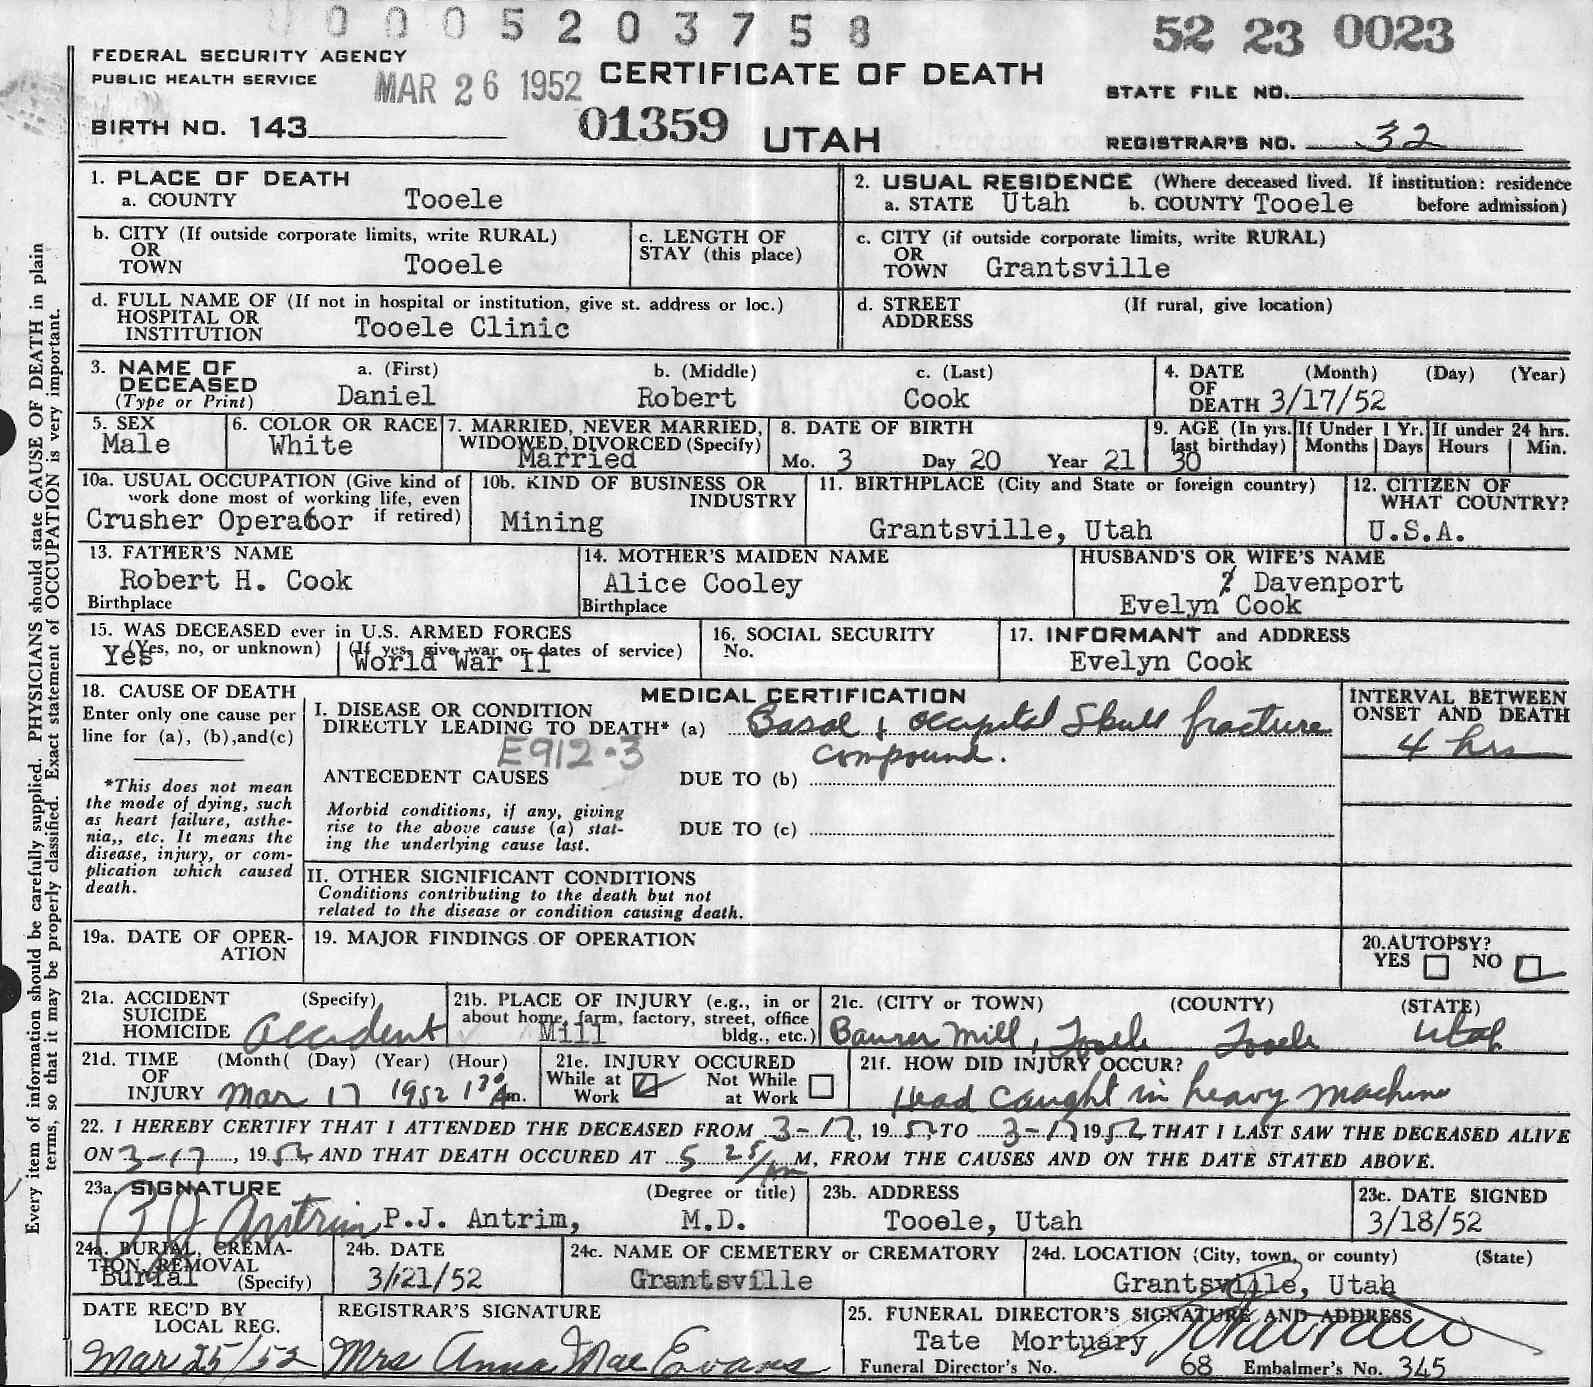 0005203758
52 23 0023
FEDERAL SECURITY AGENCY
PUBLIC HEALTH SERVICE
MAR 26 1952
CERTIFICATE OF DEATH
STATE FILE NO.
BIRTH NO. 143
01359
UTAH
REGISTRAR'S NO. 32
1. PLACE OF DEATH
a. COUNTY Tooele
2. USUAL RESIDENCE (Where deceased lived. If institution: residence before admission)
a. STATE Utah b. COUNTY Tooele
b. CITY (If outside corporate limits, write RURAL)
OR
TOWN Tooele
c. LENGTH OF
STAY (this place)
c. CITY (if outside corporate limits, write RURAL)
OR
TOWN Grantsville
d. FULL NAME OF (If not in hospital or institution, give st. address or loc.)
HOSPITAL OR
INSTITUTION Tooele Clinic
d. STREET (If rural, give location)
ADDRESS
3. NAME OF
DECEASED
(Type or Print)
a. (First) b. (Middle) c. (Last)
Daniel Robert Cook
4. DATE (Month) (Day) (Year)
OF
DEATH 3/17/52
5. SEX
Male
6. COLOR OR RACE
White
7. MARRIED, NEVER MARRIED,
WIDOWED, DIVORCED (Specify)
Married
8. DATE OF BIRTH
Mo. 3 Day 20 Year 21
9. AGE (In yrs.
last birthday)
30
If Under 1 Yr.
Months Days
If under 24 hrs.
Hours Min.
10a. USUAL OCCUPATION (Give kind of
work done most of working life, even
if retired)
Crusher Operator
10b. KIND OF BUSINESS OR
INDUSTRY
Mining
11. BIRTHPLACE (City and State or foreign country)
Grantsville, Utah
12. CITIZEN OF
WHAT COUNTRY?
U.S.A.
13. FATHER'S NAME
Robert H. Cook
Birthplace
14. MOTHER'S MAIDEN NAME
Alice Cooley
Birthplace
HUSBAND'S OR WIFE'S NAME
Davenport
Evelyn Cook
15. WAS DECEASED ever in U.S. ARMED FORCES
(Yes, no, or unknown) (If yes, give war or dates of service)
Yes World War II
16. SOCIAL SECURITY
No.
17. INFORMANT and ADDRESS
Evelyn Cook
18. CAUSE OF DEATH
Enter only one cause per
line for (a), (b),and(c)
*This does not mean
the mode of dying, such
as heart failure, asthe-
nia,, etc. It means the
disease, injury, or com-
plication which caused
death.
MEDICAL CERTIFICATION
I. DISEASE OR CONDITION
DIRECTLY LEADING TO DEATH* (a) Basal & occipital Skull fracture
E912.3 compound.
ANTECEDENT CAUSES DUE TO (b)
Morbid conditions, if any, giving
rise to the above cause (a) stat-
ing the underlying cause last.
DUE TO (c)
II. OTHER SIGNIFICANT CONDITIONS
Conditions contributing to the death but not
related to the disease or condition causing death.
INTERVAL BETWEEN
ONSET AND DEATH
4 hrs
19a. DATE OF OPER-
ATION
19. MAJOR FINDINGS OF OPERATION
20.AUTOPSY?
YES NO
21a. ACCIDENT (Specify)
SUICIDE
HOMICIDE accident
21b. PLACE OF INJURY (e.g., in or
about home, farm, factory, street, office
bldg., etc.)
Mill
21c. (CITY or TOWN) (COUNTY) (STATE)
Mill, Tooele Tooele Utah
21d. TIME (Month( (Day) (Year) (Hour)
OF
INJURY Mar 17 1952 130 m.
21e. INJURY OCCURED
While at Work Not While at Work
21f. HOW DID INJURY OCCUR?
Head caught in heavy machine
22. I HEREBY CERTIFY THAT I ATTENDED THE DECEASED FROM 3-17, 1952, TO 3-17 1952 THAT I LAST SAW THE DECEASED ALIVE
ON 3-17, 1952 AND THAT DEATH OCCURED AT 5 25 M, FROM THE CAUSES AND ON THE DATE STATED ABOVE.
23a. SIGNATURE (Degree or title)
PJ Antrim P.J. Antrim, M.D.
23b. ADDRESS
Tooele, Utah
23c. DATE SIGNED
3/18/52
24a. BURIAL, CREMA-
TION, REMOVAL
(Specify)
Burial
24b. DATE
3/21/52
24c. NAME OF CEMETERY or CREMATORY
Grantsville
24d. LOCATION (City, town, or county) (State)
Grantsville, Utah
DATE REC'D BY
LOCAL REG.
Mar 25/52
REGISTRAR'S SIGNATURE
Mrs Anna Mae Evans
25. FUNERAL DIRECTOR'S SIGNATURE AND ADDRESS
Tate Mortuary
Funeral Director's No. 68 Embalmer's No. 345
Every item of information should be carefully supplied. PHYSICIANS should state CAUSE OF DEATH in plain
terms, so that it may be properly classified. Exact statement of OCCUPATION is very important.